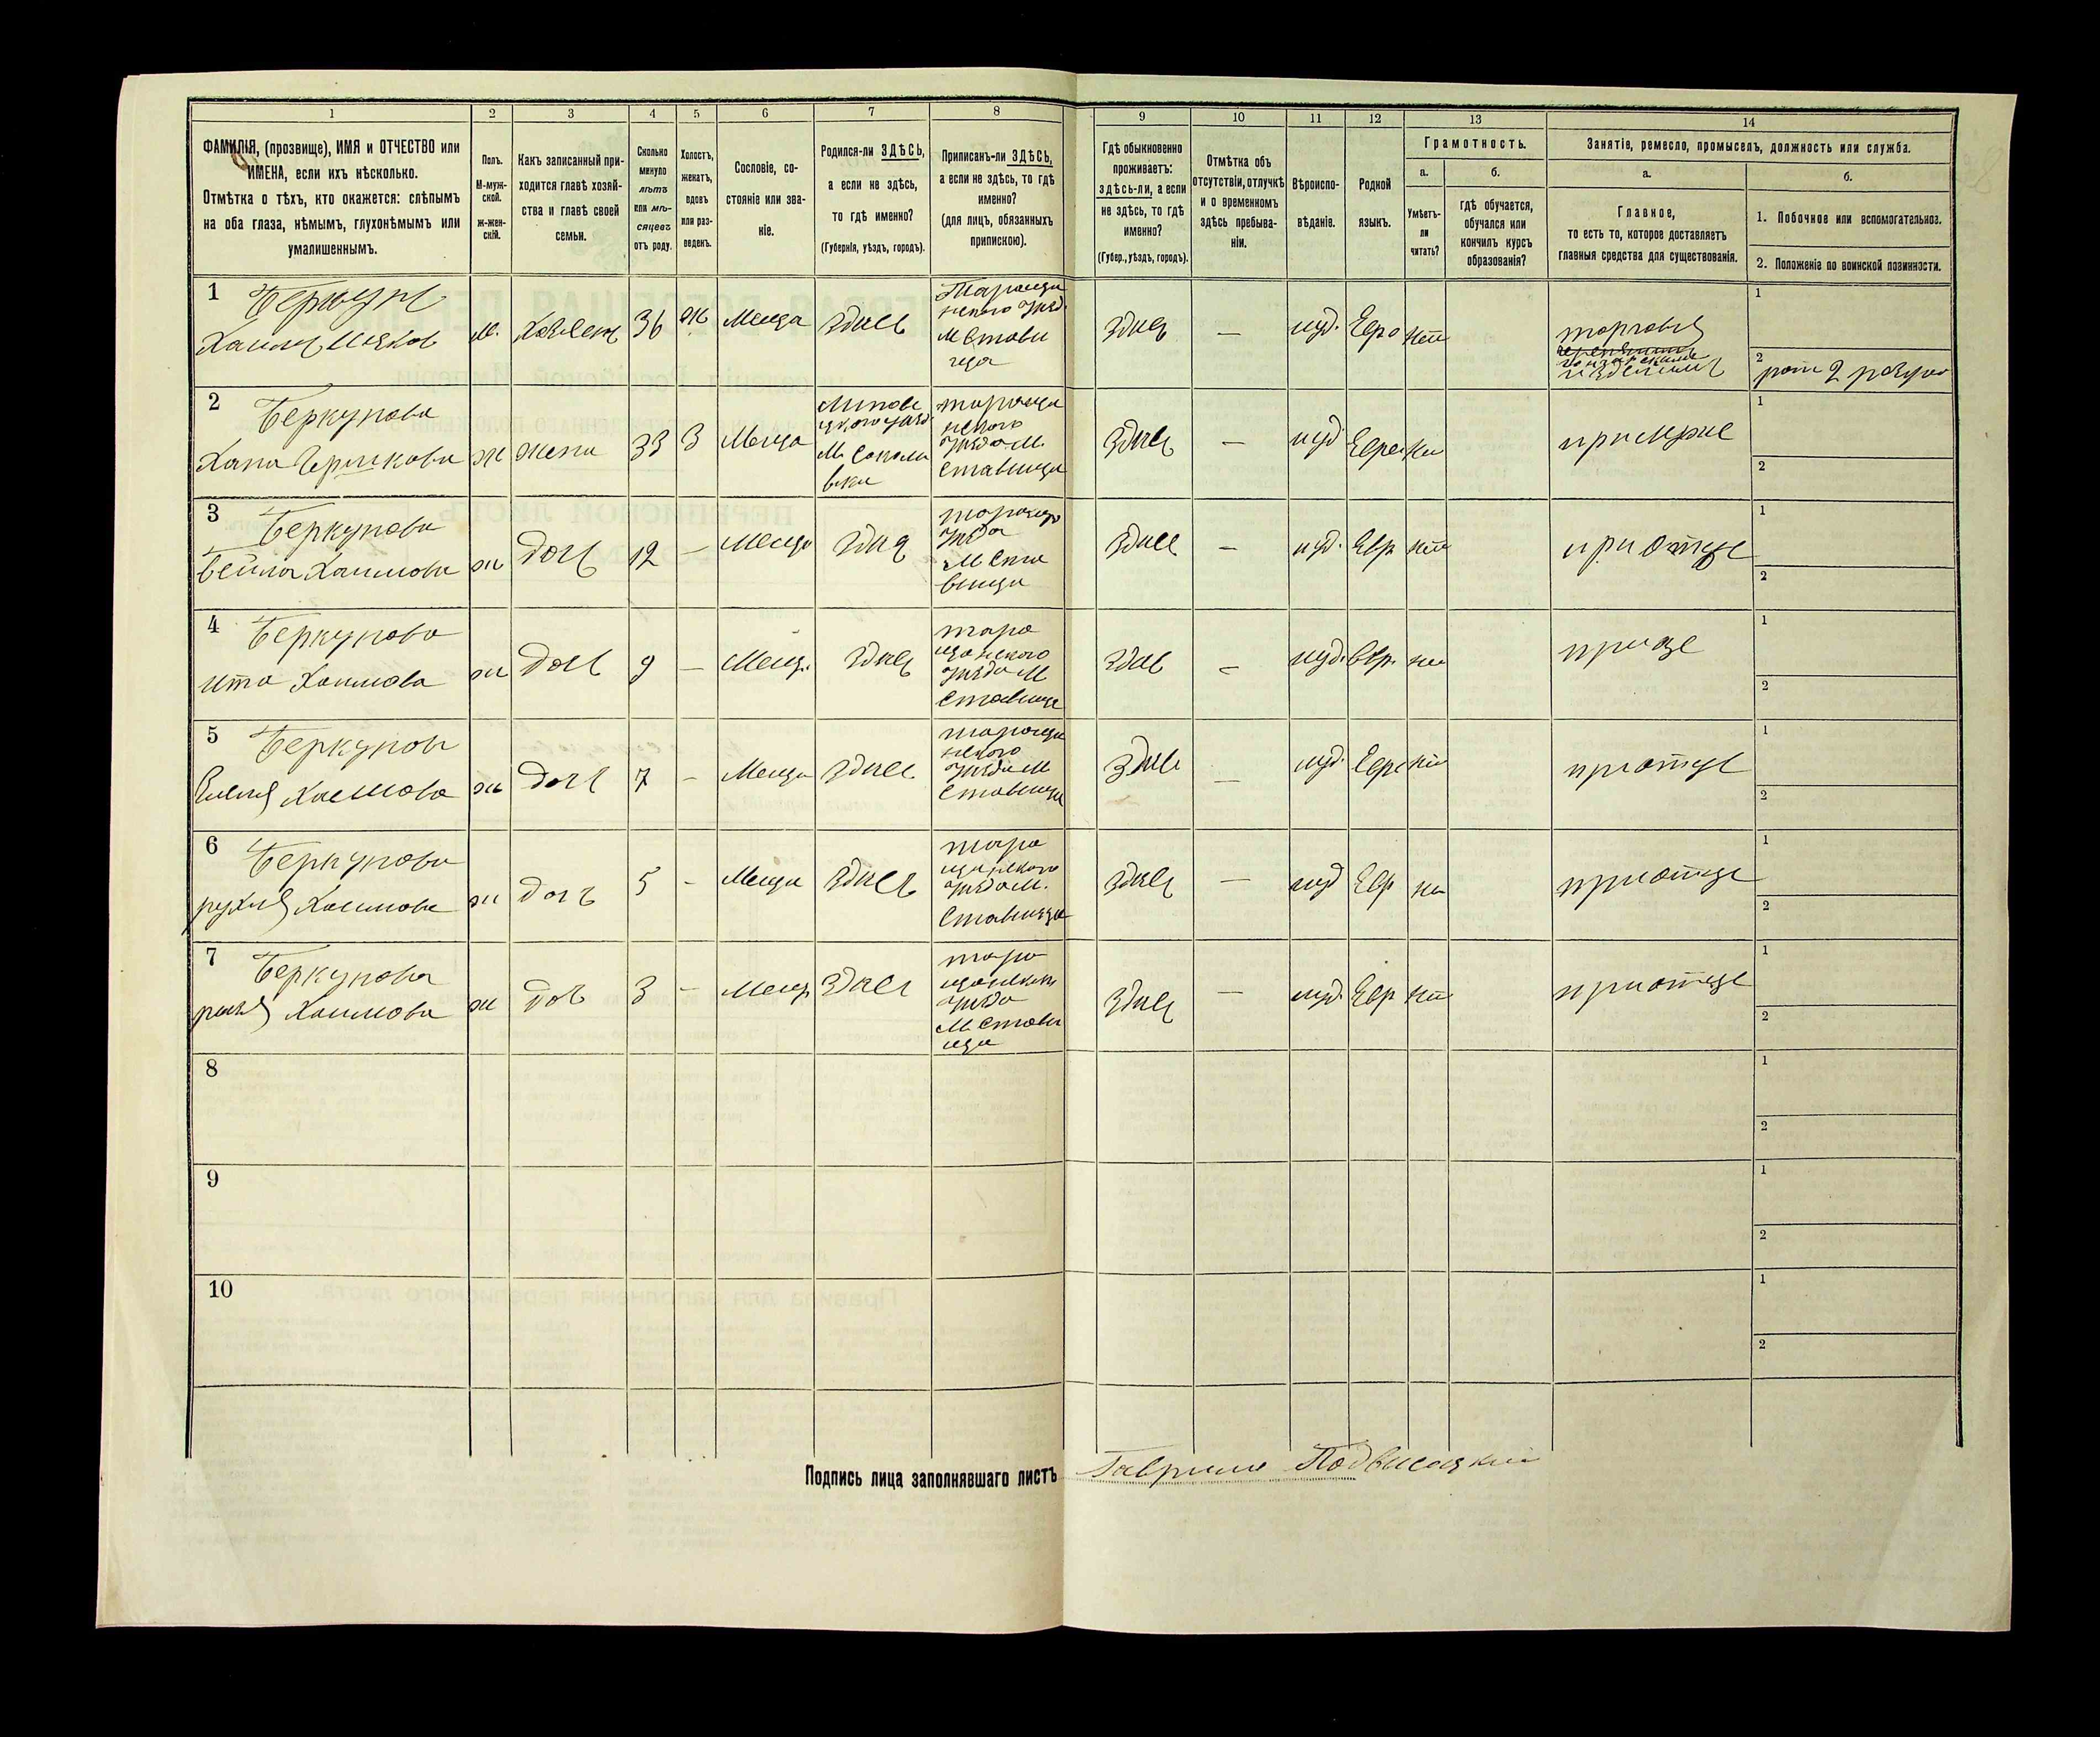 1
2
3
4
5
6
7
8
9
10
11
12
13
14
ФАМИЛІЯ, (прозвище), ИМЯ и ОТЧЕСТВО или
ИМЕНА, если ихъ нѣсколько.
Отмѣтка о тѣхъ, кто окажется: слѣпымъ
на оба глаза, нѣмымъ, глухонѣмымъ или
умалишеннымъ.
Полъ.
М-муж-
ской.
ж-жен-
скій.
Какъ записанный при-
ходится главѣ хозяй-
ства и главѣ своей
семьи.
Сколько
минуло
лѣтъ
или мѣ-
сяцевъ
отъ роду.
Холостъ,
женатъ,
вдовъ
или раз-
веденъ.
Сословіе, со-
стояніе или зва-
ніе.
Родился-ли ЗДѢСЬ,
а если не здѣсь,
то гдѣ именно?
(Губернія, уѣздъ, городъ).
Приписанъ-ли ЗДѢСЬ,
а если не здѣсь, то гдѣ
именно?
(для лицъ, обязанныхъ
припискою).
Гдѣ обыкновенно
проживаетъ:
здѣсь-ли, а если
не здѣсь, то гдѣ
именно?
(Губер., уѣздъ, городъ).
Отмѣтка объ
отсутствіи, отлучкѣ
и о временномъ
здѣсь пребыва-
ніи.
Вѣроиспо-
вѣданіе.
Родной
языкъ.
Грамотность.
а.
Умѣетъ-
ли
читать?
б.
гдѣ обучается,
обучался или
кончилъ курсъ
образованія?
Занятіе, ремесло, промыселъ, должность или служба.
а.
Главное,
то есть то, которое доставляетъ
главныя средства для существованія.
б.
1. Побочное или вспомогательное.
2. Положеніе по воинской повинности.
1
Беркунъ
Хаимъ
м.
36
ж
Меща
здись
М Стави
ща
здись
—
иуд.
Евре
торговля
1
2
рат 2 разряд
2
Беркунова
Хана
ж
жена
33
З
Меща
М
М.
Ставища
здись
—
иуд
Евре
1
2
3
Беркунова
Бейла Хаимова
ж
доч
12
—
Меща
здис
М Ста
вища
здись
—
иуд.
Евр
при отце
1
2
4
Беркунова
ита Хаимова
ж
доч
9
—
Мещ.
здись
тара
щанского
уизда М
Ставище
здис
—
иуд.
Евр.
1
2
5
Беркунова
Хаимова
ж
доч
7
—
Меща
здись
уизда М
Ставища
здись
—
иуд.
Евре
при отце
1
2
6
Беркунова
рухля Хаимова
ж
доч
5
—
Меща
здись
тара
щанского
уизда М.
Ставища
здись
—
иуд
Евр
при отце
1
2
7
Беркунова
Хаимова
ж
доч
3
—
Мещ
здись
тара
уизда
М Стави
ща
здись
—
иуд.
Евр
при отце
1
2
8
1
2
9
1
2
10
1
2
Подпись лица заполнявшаго листъ Гаврило Подвисоцкий